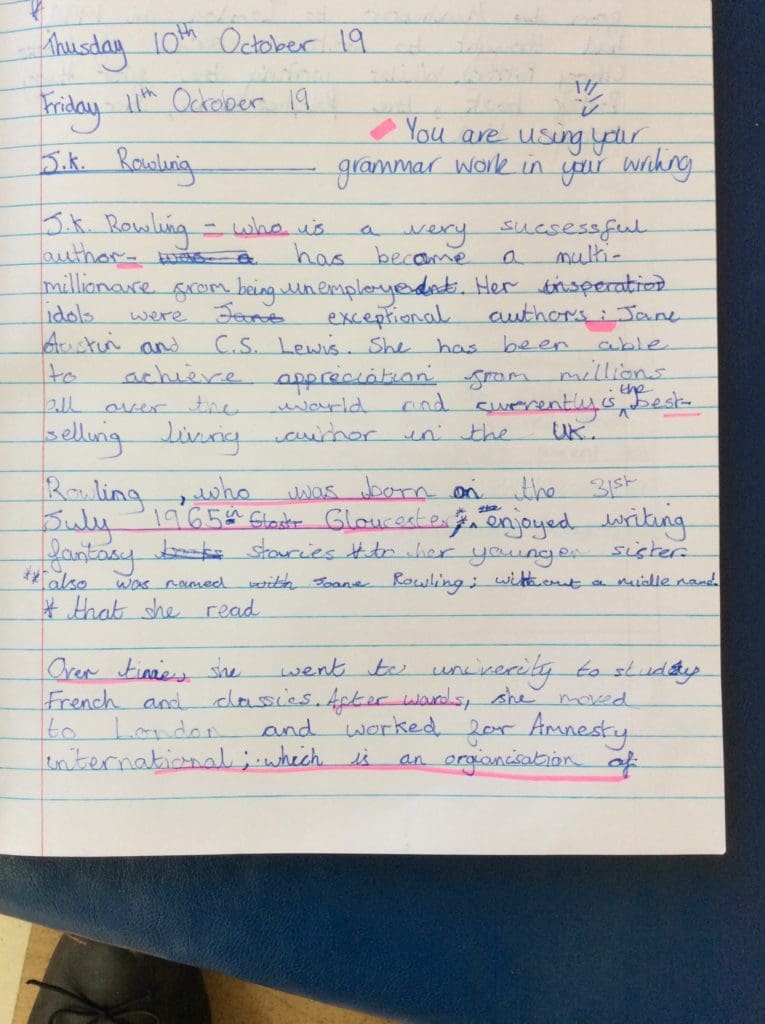 Thusday 10th October 19
Friday 11th October 19
You are using your
J.K. Rowling grammar work in your writing
J.K. Rowling - who is a very sucsessful
author- was a has become a multi-
millionare from being unemployed. Her insperation
idols were Jane exceptional authors: Jane
Austin and C.S. Lewis. She has been able
to achieve appreciation from millions
all over the world and currently is the best-
selling living author in the UK.
Rowling, who was born on the 31st
July 1965 in Gloucester, ** enjoyed writing
fantasy books stories * to her younger sister.
** also was named with Joane Rowling; without a middle name.
* that she read
Over time, she went to univercity to study
French and classics. After wards, she moved
to London and worked for Amnesty
international; which is an orgianisation of